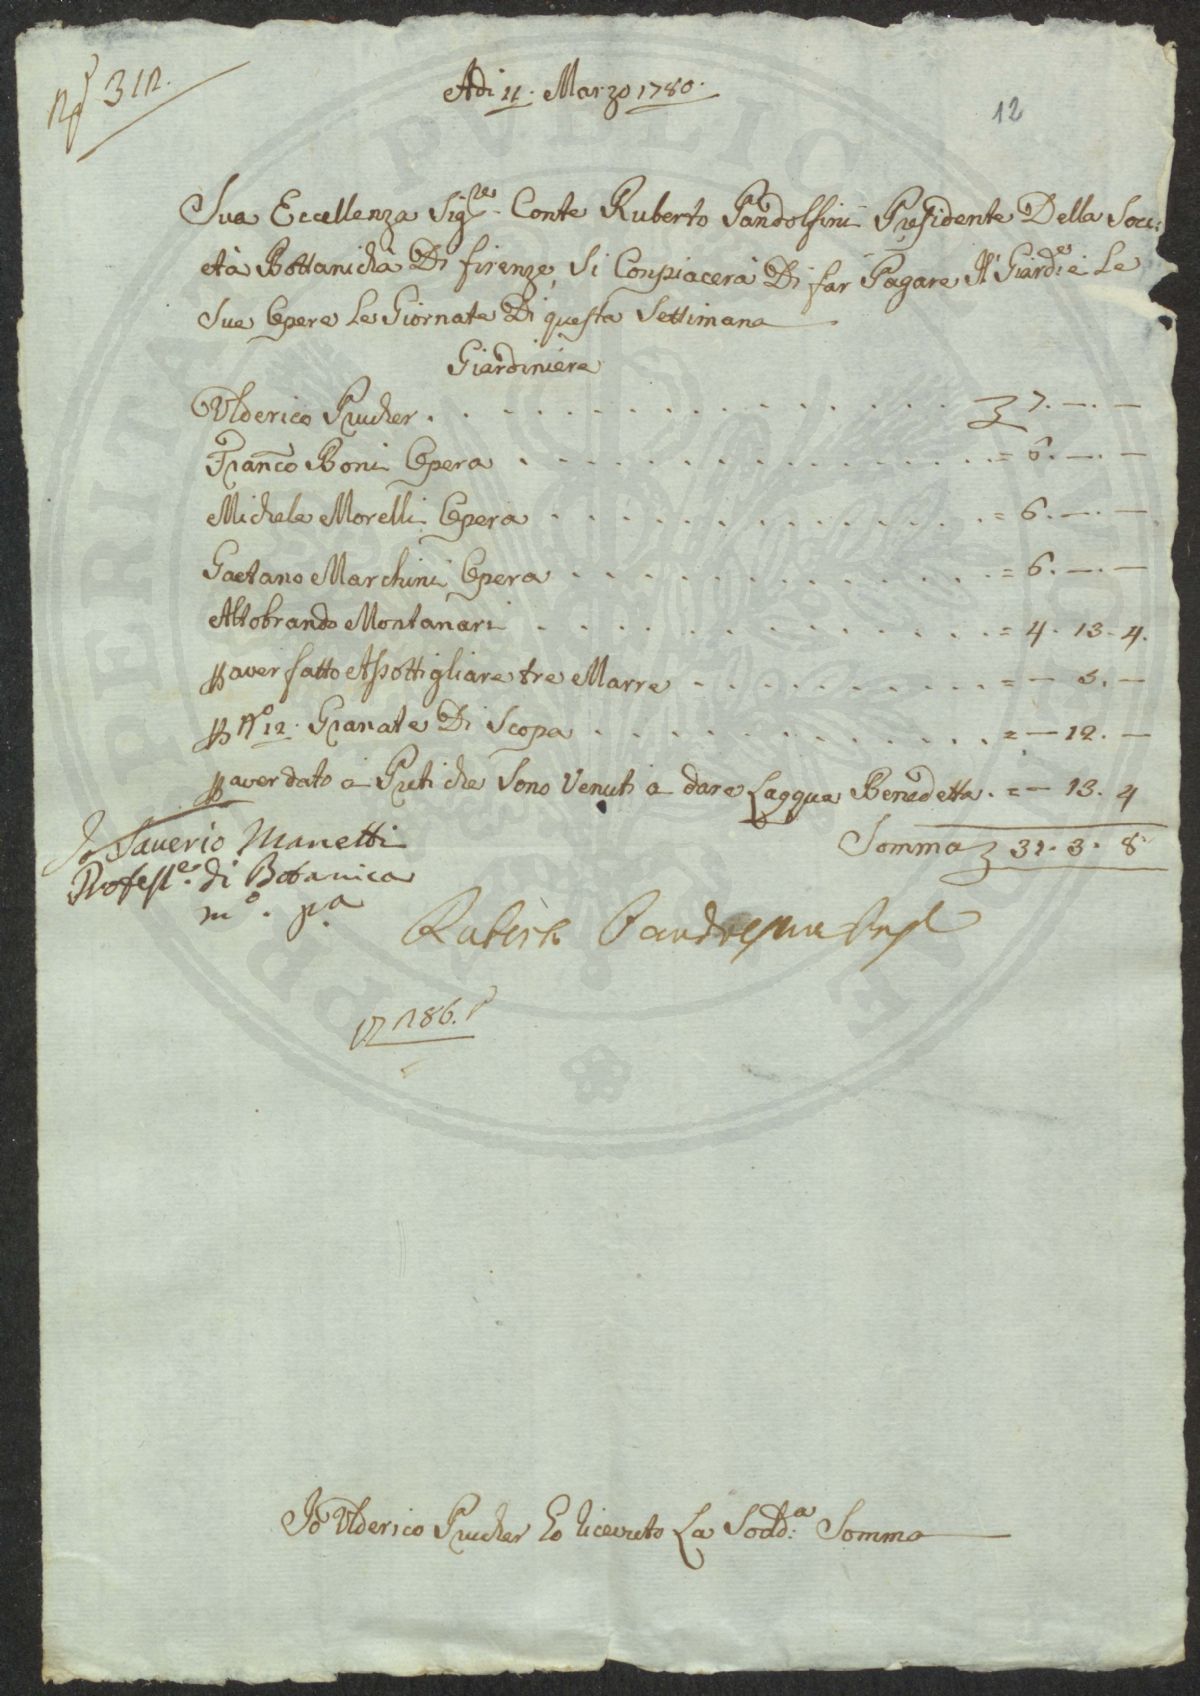 312.
Adi 11. Marzo 1780.
12
Sua Eccellenza Sig:re Conte Ruberto Pandolfini Presidente Della Soci:
età Bottanicha Di firenze, Si Conpiacerà Di far Pagare Al Giard:e e Le
Sue Opere Le Giornate Di questa Settimana
Giardiniere
Ulderico Prucher . . . . . . . . . . . . . . . . 7. —. —
Franco Boni Opera . . . . . . . . . . . . . . = 6. —. —
Michele Morelli Opera . . . . . . . . . . . . . = 6. —. —
Gaetano Marchini Opera . . . . . . . . . . . . . = 6. —. —
Altobrando Montanari . . . . . . . . . . . . . = 4. 13. 4.
p aver fatto Assottigliare tre Marre . . . . . . . . . . = — 5. —
p No 12. Granate Di Scopa . . . . . . . . . . . . = — 12. —
p aver dato a Preti che Sono Venuti a dare Lagqua Benedetta. = — 13. 4
Somma 31. 3. 8
Io Saverio Manetti
Profess:e di Botanica
mo. pa
Ruberto Pandolfini Pres
186.
Io Ulderico Prucher Ho riceuto La Sodd:a Somma
PERITA PVBLIC